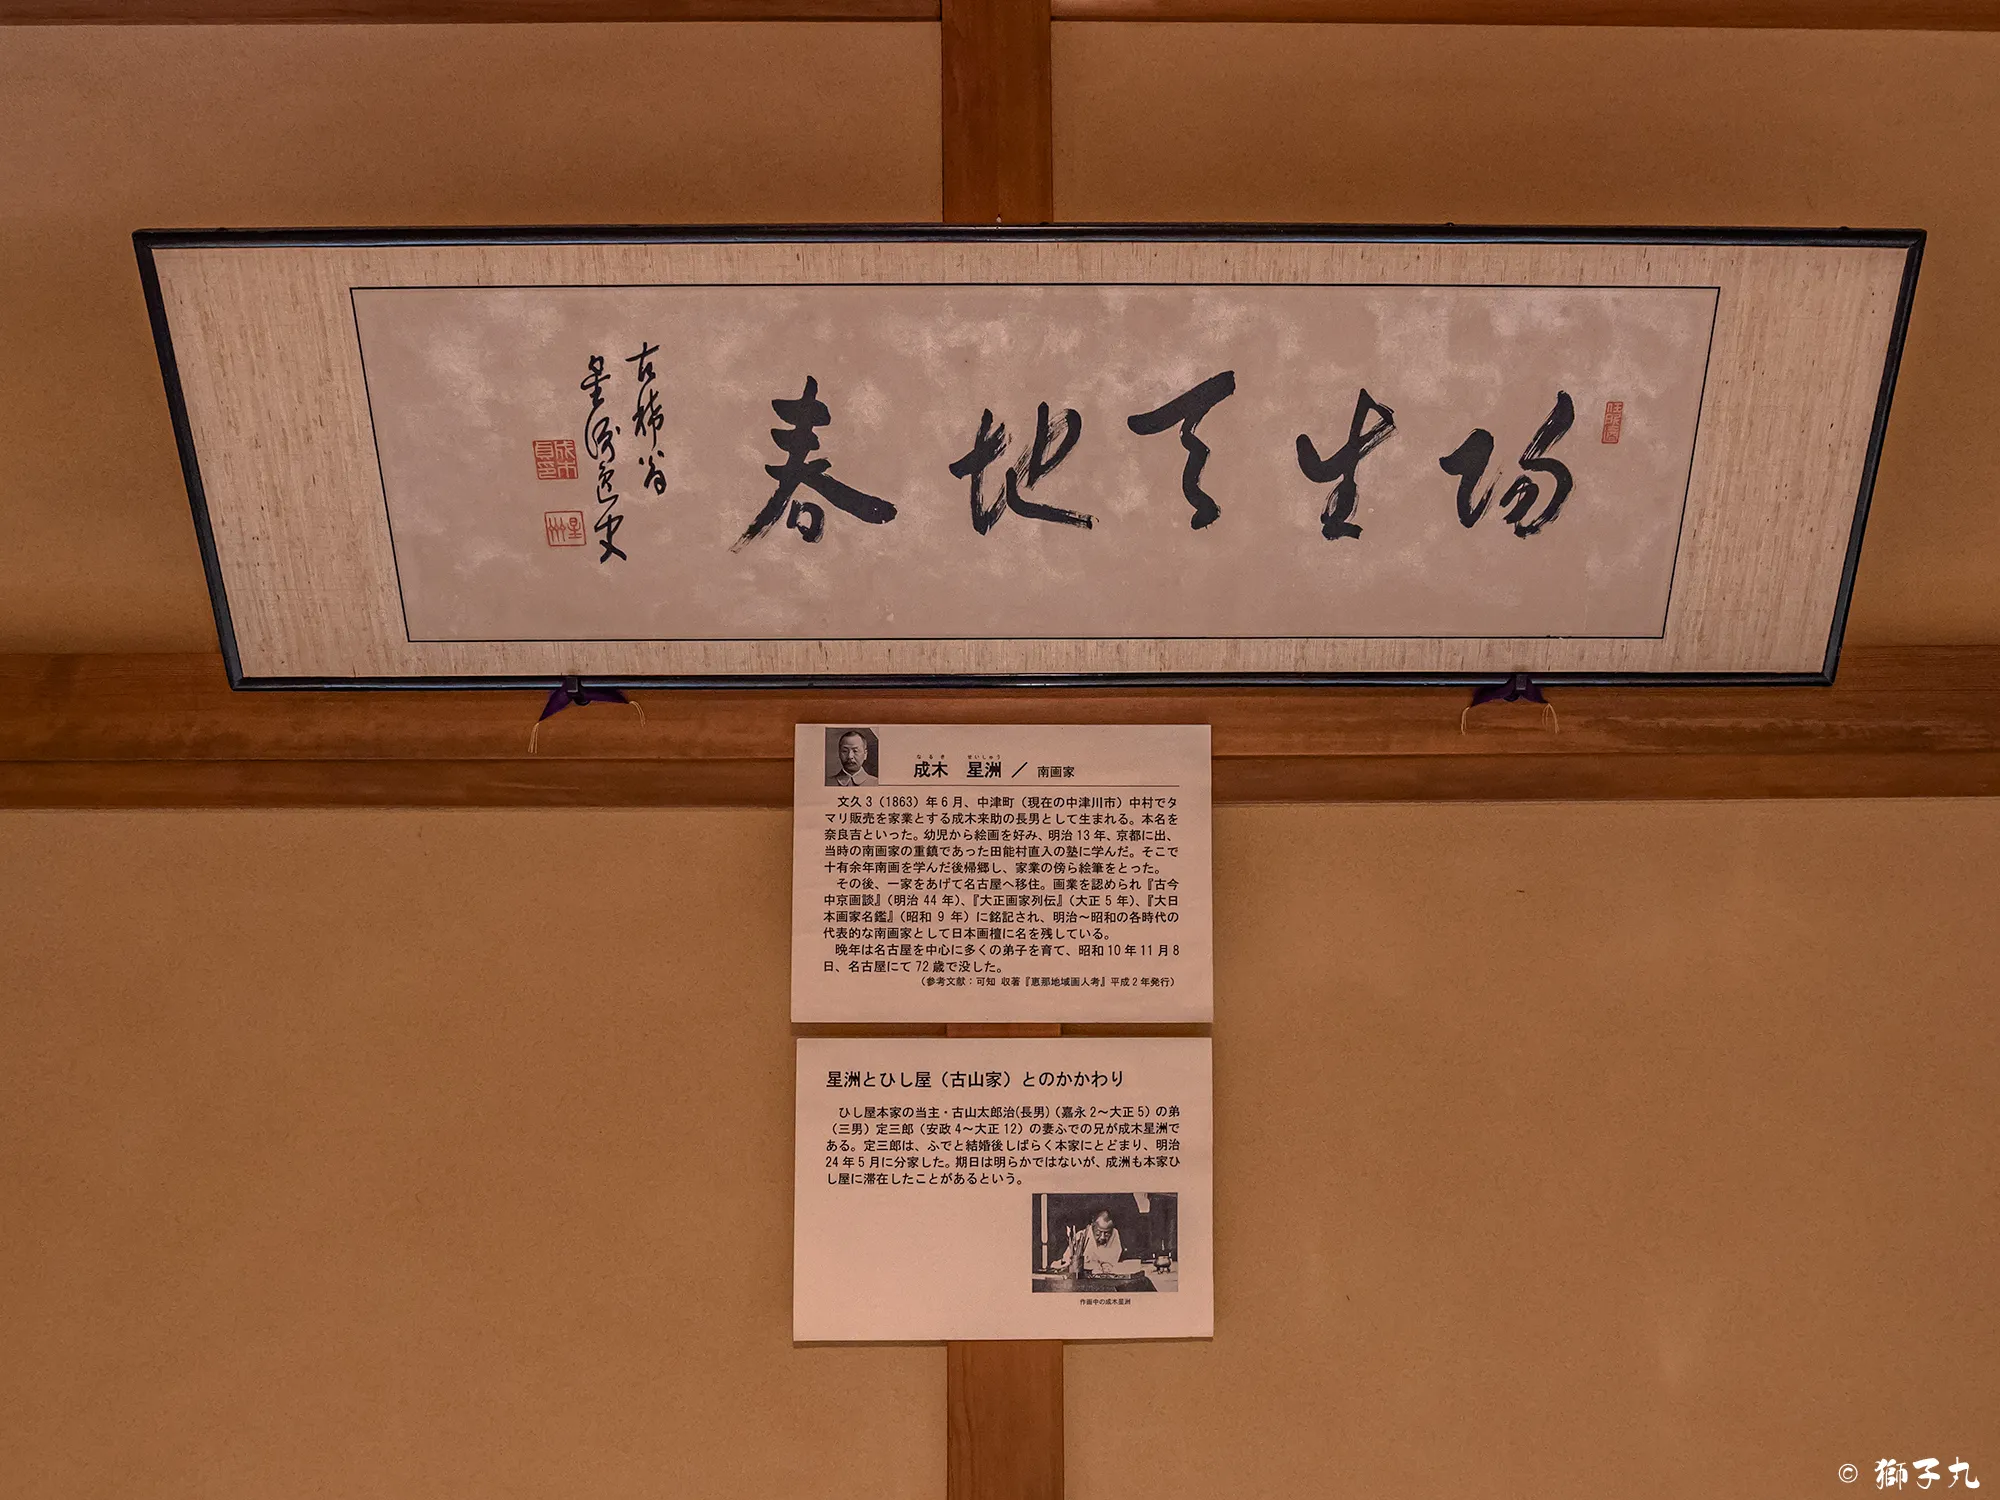 陽生天地春
古稀翁
星洲逸史
成木
貞印
星
州
なるき せいしゅう
成木 星洲 / 南画家
文久3(1863)年6月、中津町(現在の中津川市)中村でタ
マリ販売を家業とする成木来助の長男として生まれる。本名を
奈良吉といった。幼児から絵画を好み、明治13年、京都に出、
当時の南画家の重鎮であった田能村直入の塾に学んだ。そこで
十有余年南画を学んだ後帰郷し、家業の傍ら絵筆をとった。
その後、一家をあげて名古屋へ移住。画業を認められ『古今
中京画談』(明治44年)、『大正画家列伝』(大正5年)、『大日
本画家名鑑』(昭和9年)に銘記され、明治~昭和の各時代の
代表的な南画家として日本画檀に名を残している。
晩年は名古屋を中心に多くの弟子を育て、昭和10年11月8
日、名古屋にて72歳で没した。
(参考文献:可知 収著『恵那地域画人考』平成2年発行)
星洲とひし屋(古山家)とのかかわり
ひし屋本家の当主・古山太郎治(長男)(嘉永2~大正5)の弟
(三男)定三郎(安政4~大正12)の妻ふでの兄が成木星洲で
ある。定三郎は、ふでと結婚後しばらく本家にとどまり、明治
24年5月に分家した。期日は明らかではないが、成洲も本家ひ
し屋に滞在したことがあるという。
作画中の成木星洲
© 獅子丸